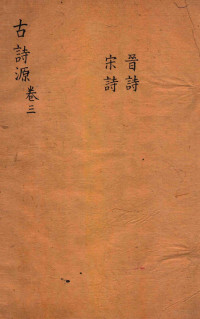 古詩源卷三
晉詩
宋詩